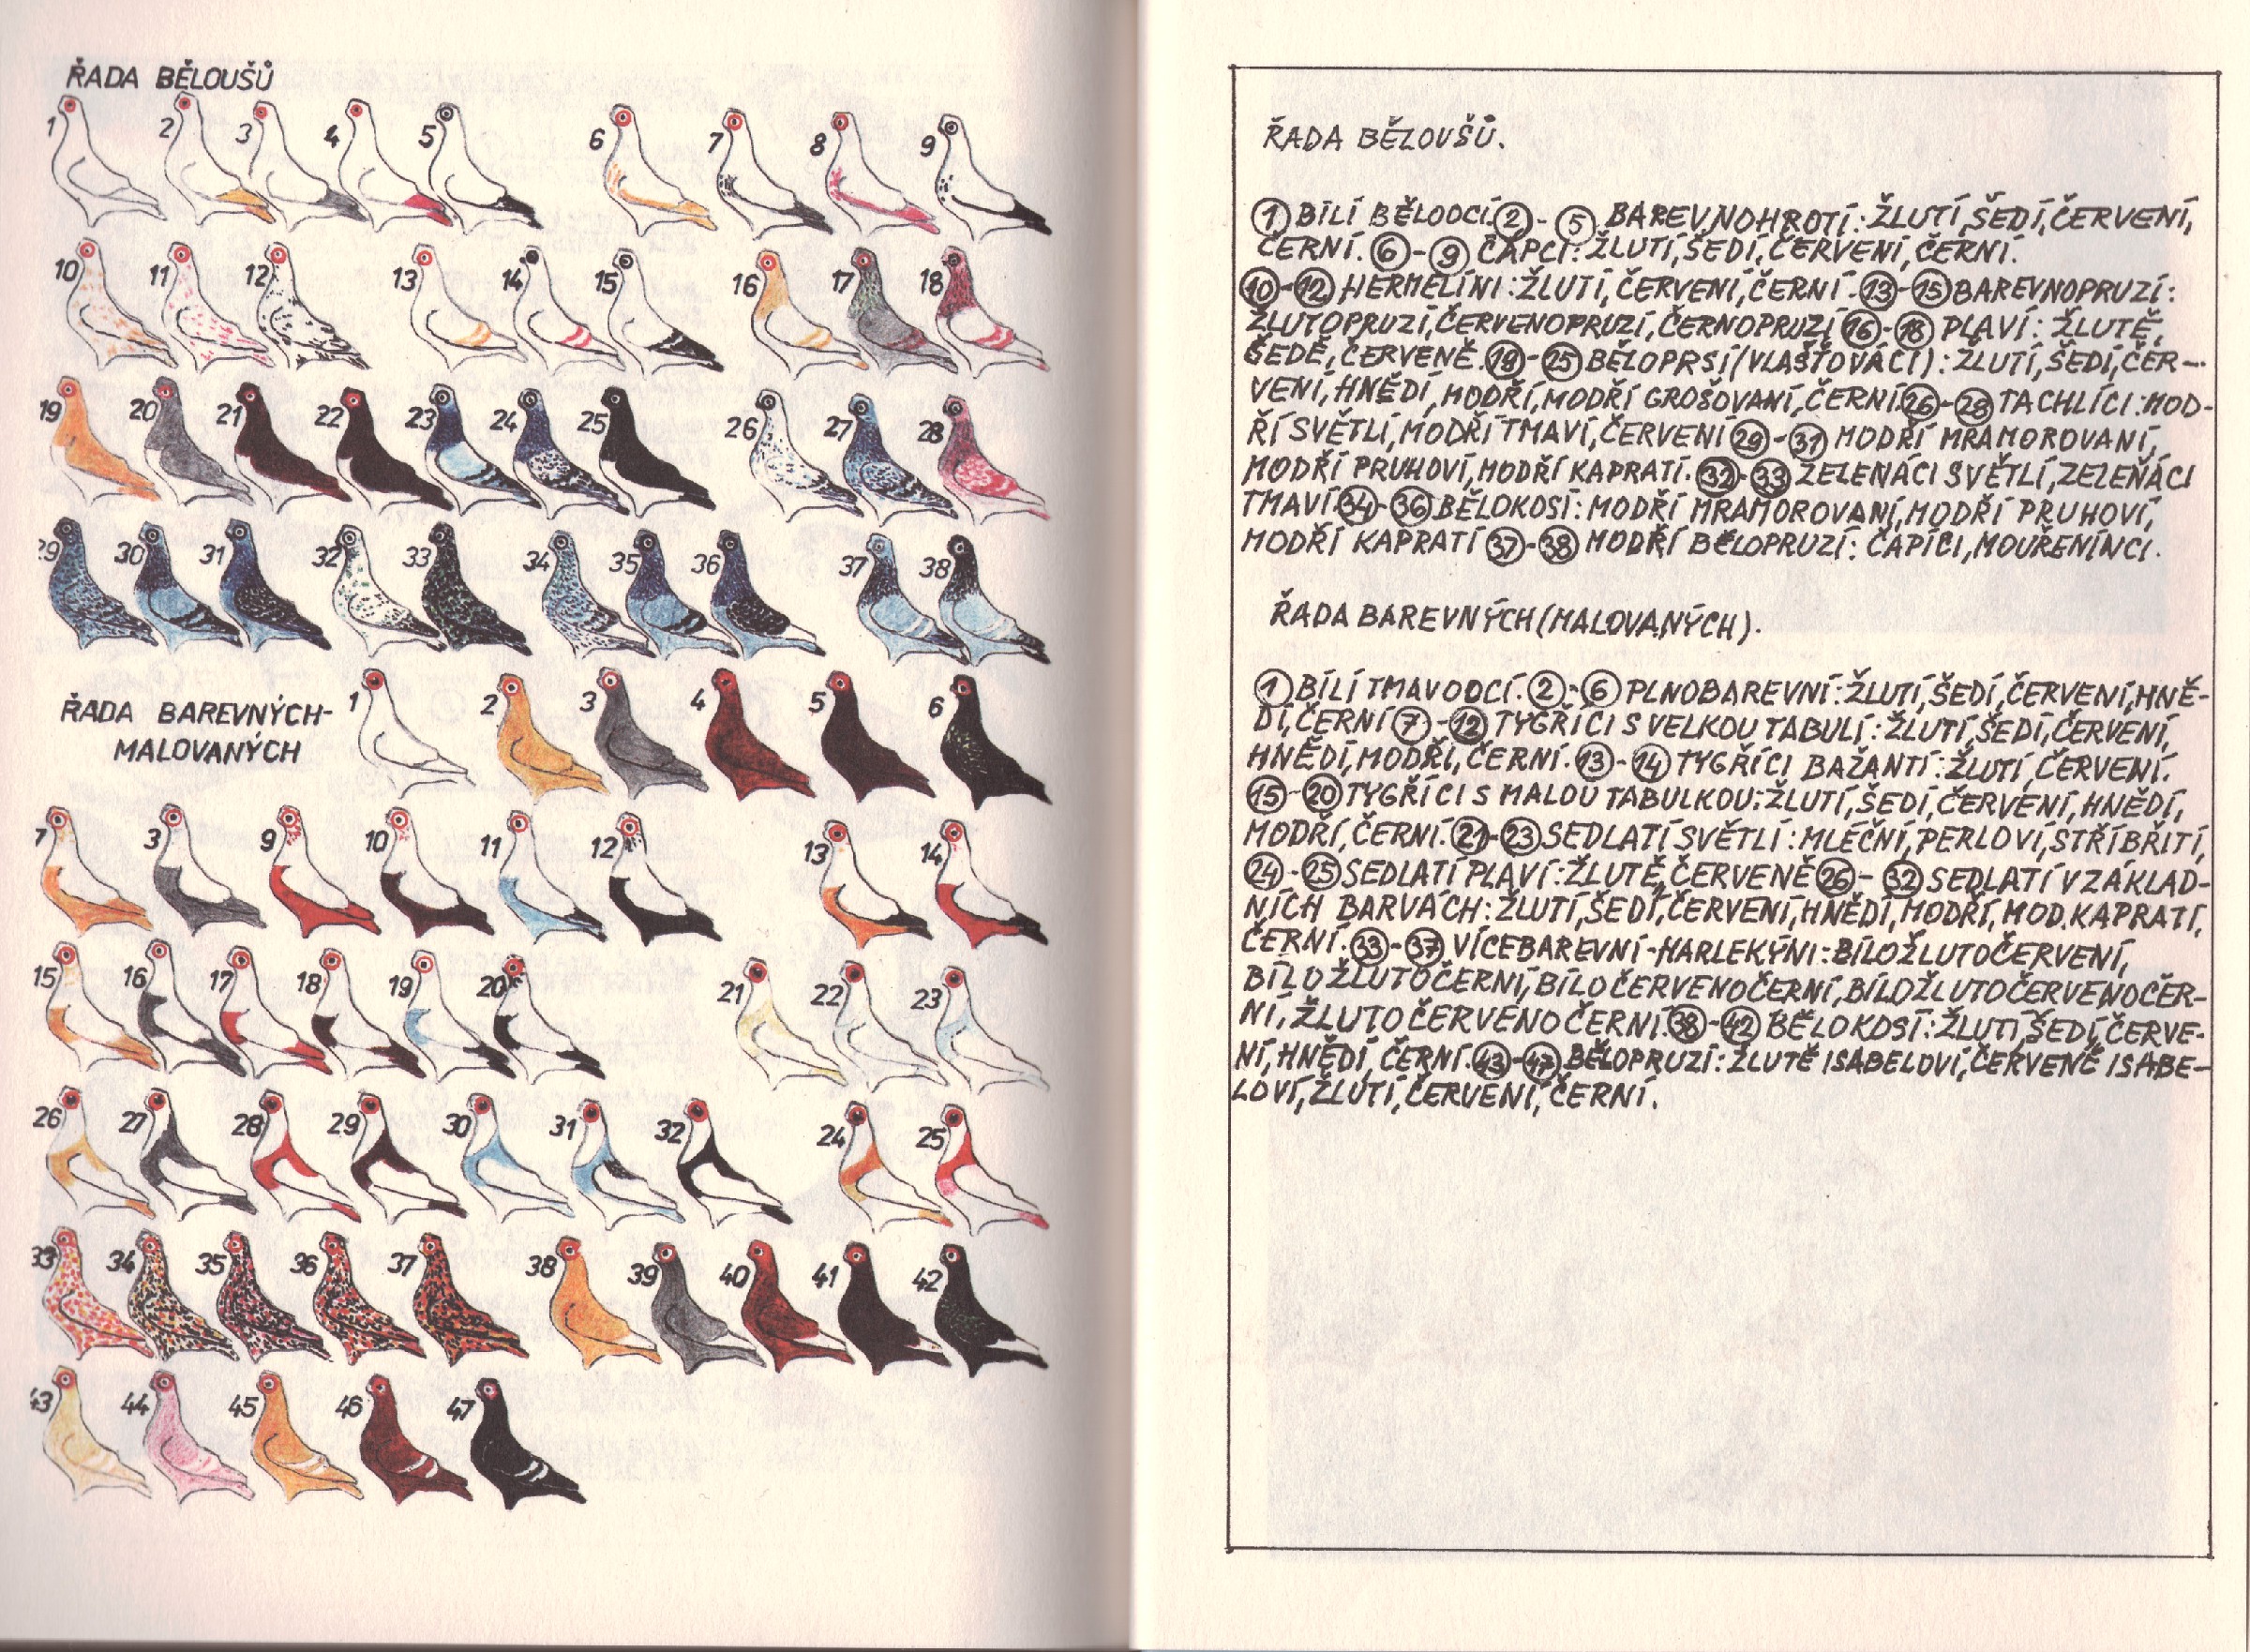 ŘADA BĚLOUŠŮ
1 2 3 4 5 6 7 8 9
10 11 12 13 14 15 16 17 18
19 20 21 22 23 24 25 26 27 28
29 30 31 32 33 34 35 36 37 38
ŘADA BAREVNÝCH-
MALOVANÝCH
1 2 3 4 5 6
7 3 9 10 11 12 13 14
15 16 17 18 19 20 21 22 23
26 27 28 29 30 31 32 24 25
33 34 35 36 37 38 39 40 41 42
43 44 45 46 47
ŘADA BĚLOUŠŮ.
1 BILÍ BĚLOOCÍ 2 - 5 BAREVNOHROTÍ: ŽLUTÍ, ŠEDÍ, ČERVENÍ,
ČERNÍ. 6 - 9 ČÁPCI: ŽLUTÍ, ŠEDÍ, ČERVENÍ, ČERNÍ.
10 - 12 HERMELÍNI: ŽLUTÍ, ČERVENÍ, ČERNÍ. 13 - 15 BAREVNOPRUZÍ:
ŽLUTOPRUZÍ, ČERVENOPRUZÍ, ČERNOPRUZÍ 16 - 18 PLAVÍ: ŽLUTĚ,
ŠEDĚ, ČERVENĚ. 19 - 25 BĚLOPRSÍ (VLAŠŤOVÁCI): ŽLUTÍ, ŠEDÍ, ČER-
VENÍ, HNĚDÍ, MODŘÍ, MODŘÍ GROŠOVANÍ, ČERNÍ. 26 - 28 TACHLÍCI: MOD-
ŘÍ SVĚTLÍ, MODŘÍ TMAVÍ, ČERVENÍ 29 - 31 MODŘÍ MRAMOROVANÍ,
MODŘÍ PRUHOVÍ, MODŘÍ KAPRATÍ. 32 - 33 ZELENÁCI SVĚTLÍ, ZELEŇÁCI
TMAVÍ. 34 - 36 BĚLOKOSÍ: MODŘÍ MRAMOROVANÍ, MODŘÍ PRUHOVÍ,
MODŘÍ KAPRATÍ 37 - 38 MODŘÍ BĚLOPRUZÍ: ČÁPÍCI, MOUŘENÍNCI.
ŘADA BAREVNÝCH (MALOVANÝCH).
1 BÍLÍ TMAVOOCÍ. 2 - 6 PLNOBAREVNÍ: ŽLUTÍ, ŠEDÍ, ČERVENÍ, HNĚ-
DÍ, ČERNÍ 7 - 12 TYGŘÍCI S VELKOU TABULÍ: ŽLUTÍ, ŠEDÍ, ČERVENÍ,
HNĚDÍ, MODŘÍ, ČERNÍ. 13 - 14 TYGŘÍCI BAŽANTÍ: ŽLUTÍ, ČERVENÍ.
15 - 20 TYGŘÍCI S MALOU TABULKOU: ŽLUTÍ, ŠEDÍ, ČERVENÍ, HNĚDÍ,
MODŘÍ, ČERNÍ. 21 - 23 SEDLATÍ SVĚTLÍ: MLÉČNÍ, PERLOVÍ, STŘÍBŘITÍ,
24 - 25 SEDLATÍ PLAVÍ: ŽLUTĚ, ČERVENĚ 26 - 32 SEDLATÍ V ZÁKLAD-
NÍCH BARVÁCH: ŽLUTÍ, ŠEDÍ, ČERVENÍ, HNĚDÍ, MODŘÍ, MOD. KAPRATÍ,
ČERNÍ. 33 - 37 VÍCEBAREVNÍ-HARLEKÝNI: BÍLOŽLUTOČERVENÍ,
BÍLOŽLUTOČERNÍ, BÍLOČERVENOČERNÍ, BÍLOŽLUTOČERVENOČER-
NÍ, ŽLUTOČERVENOČERNÍ. 38 - 42 BĚLOKOSÍ: ŽLUTÍ, ŠEDÍ, ČERVE-
NÍ, HNĚDÍ, ČERNÍ. 43 - 47 BĚLOPRUZÍ: ŽLUTĚ ISABELOVÍ, ČERVENĚ ISABE-
LOVÍ, ŽLUTÍ, ČERVENÍ, ČERNÍ.